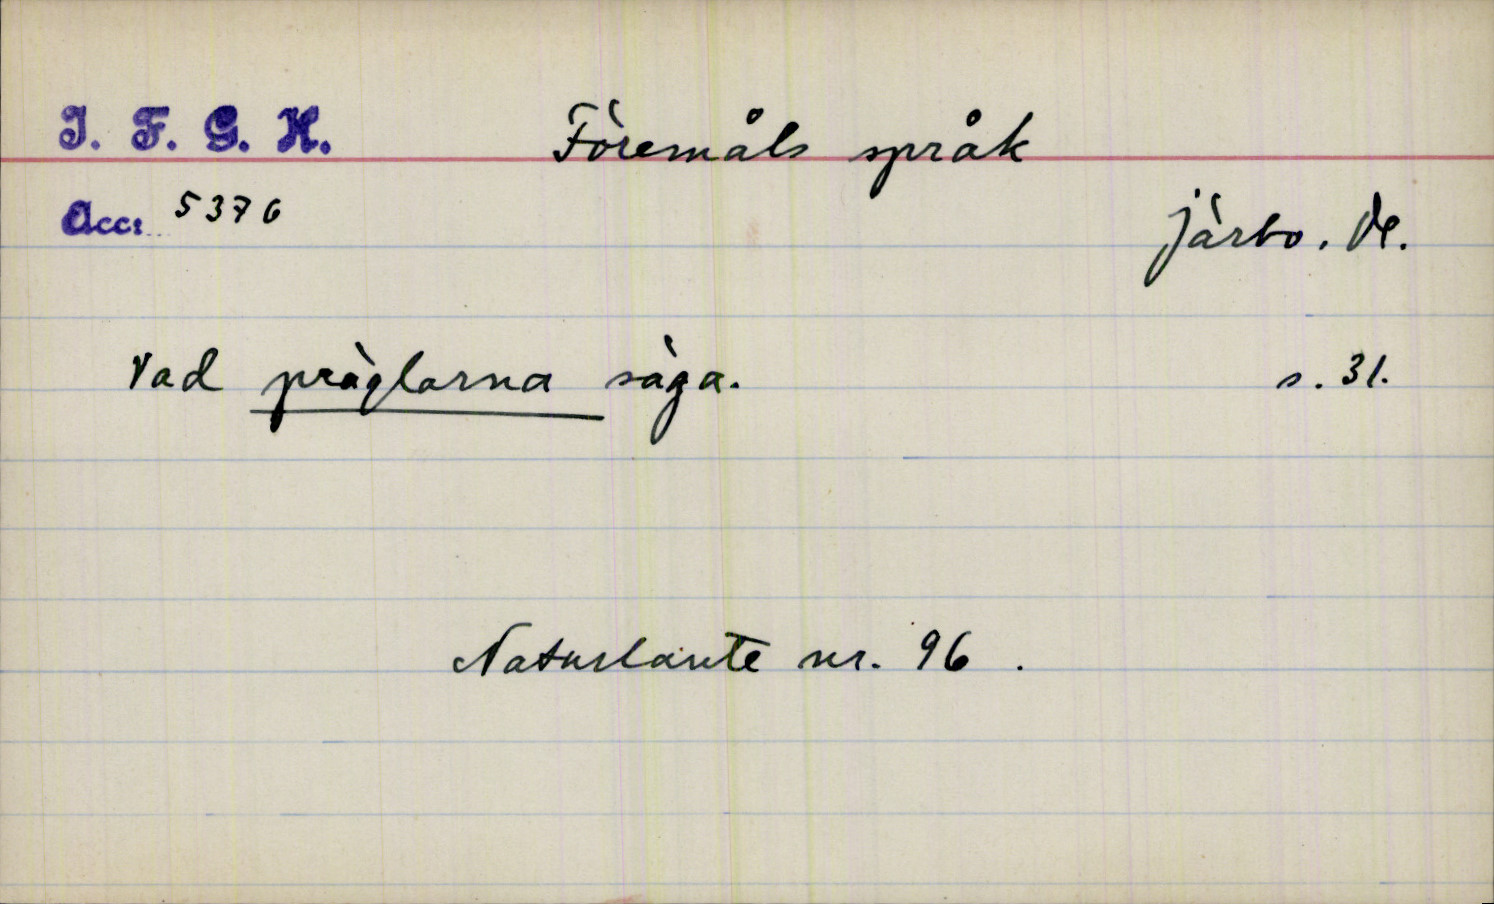 I. F. G. H.
Föremåls språk
Acc: 5376
Järbo. Vg.
Vad präglarna säga. s. 31.
Naturlaute nr. 96.